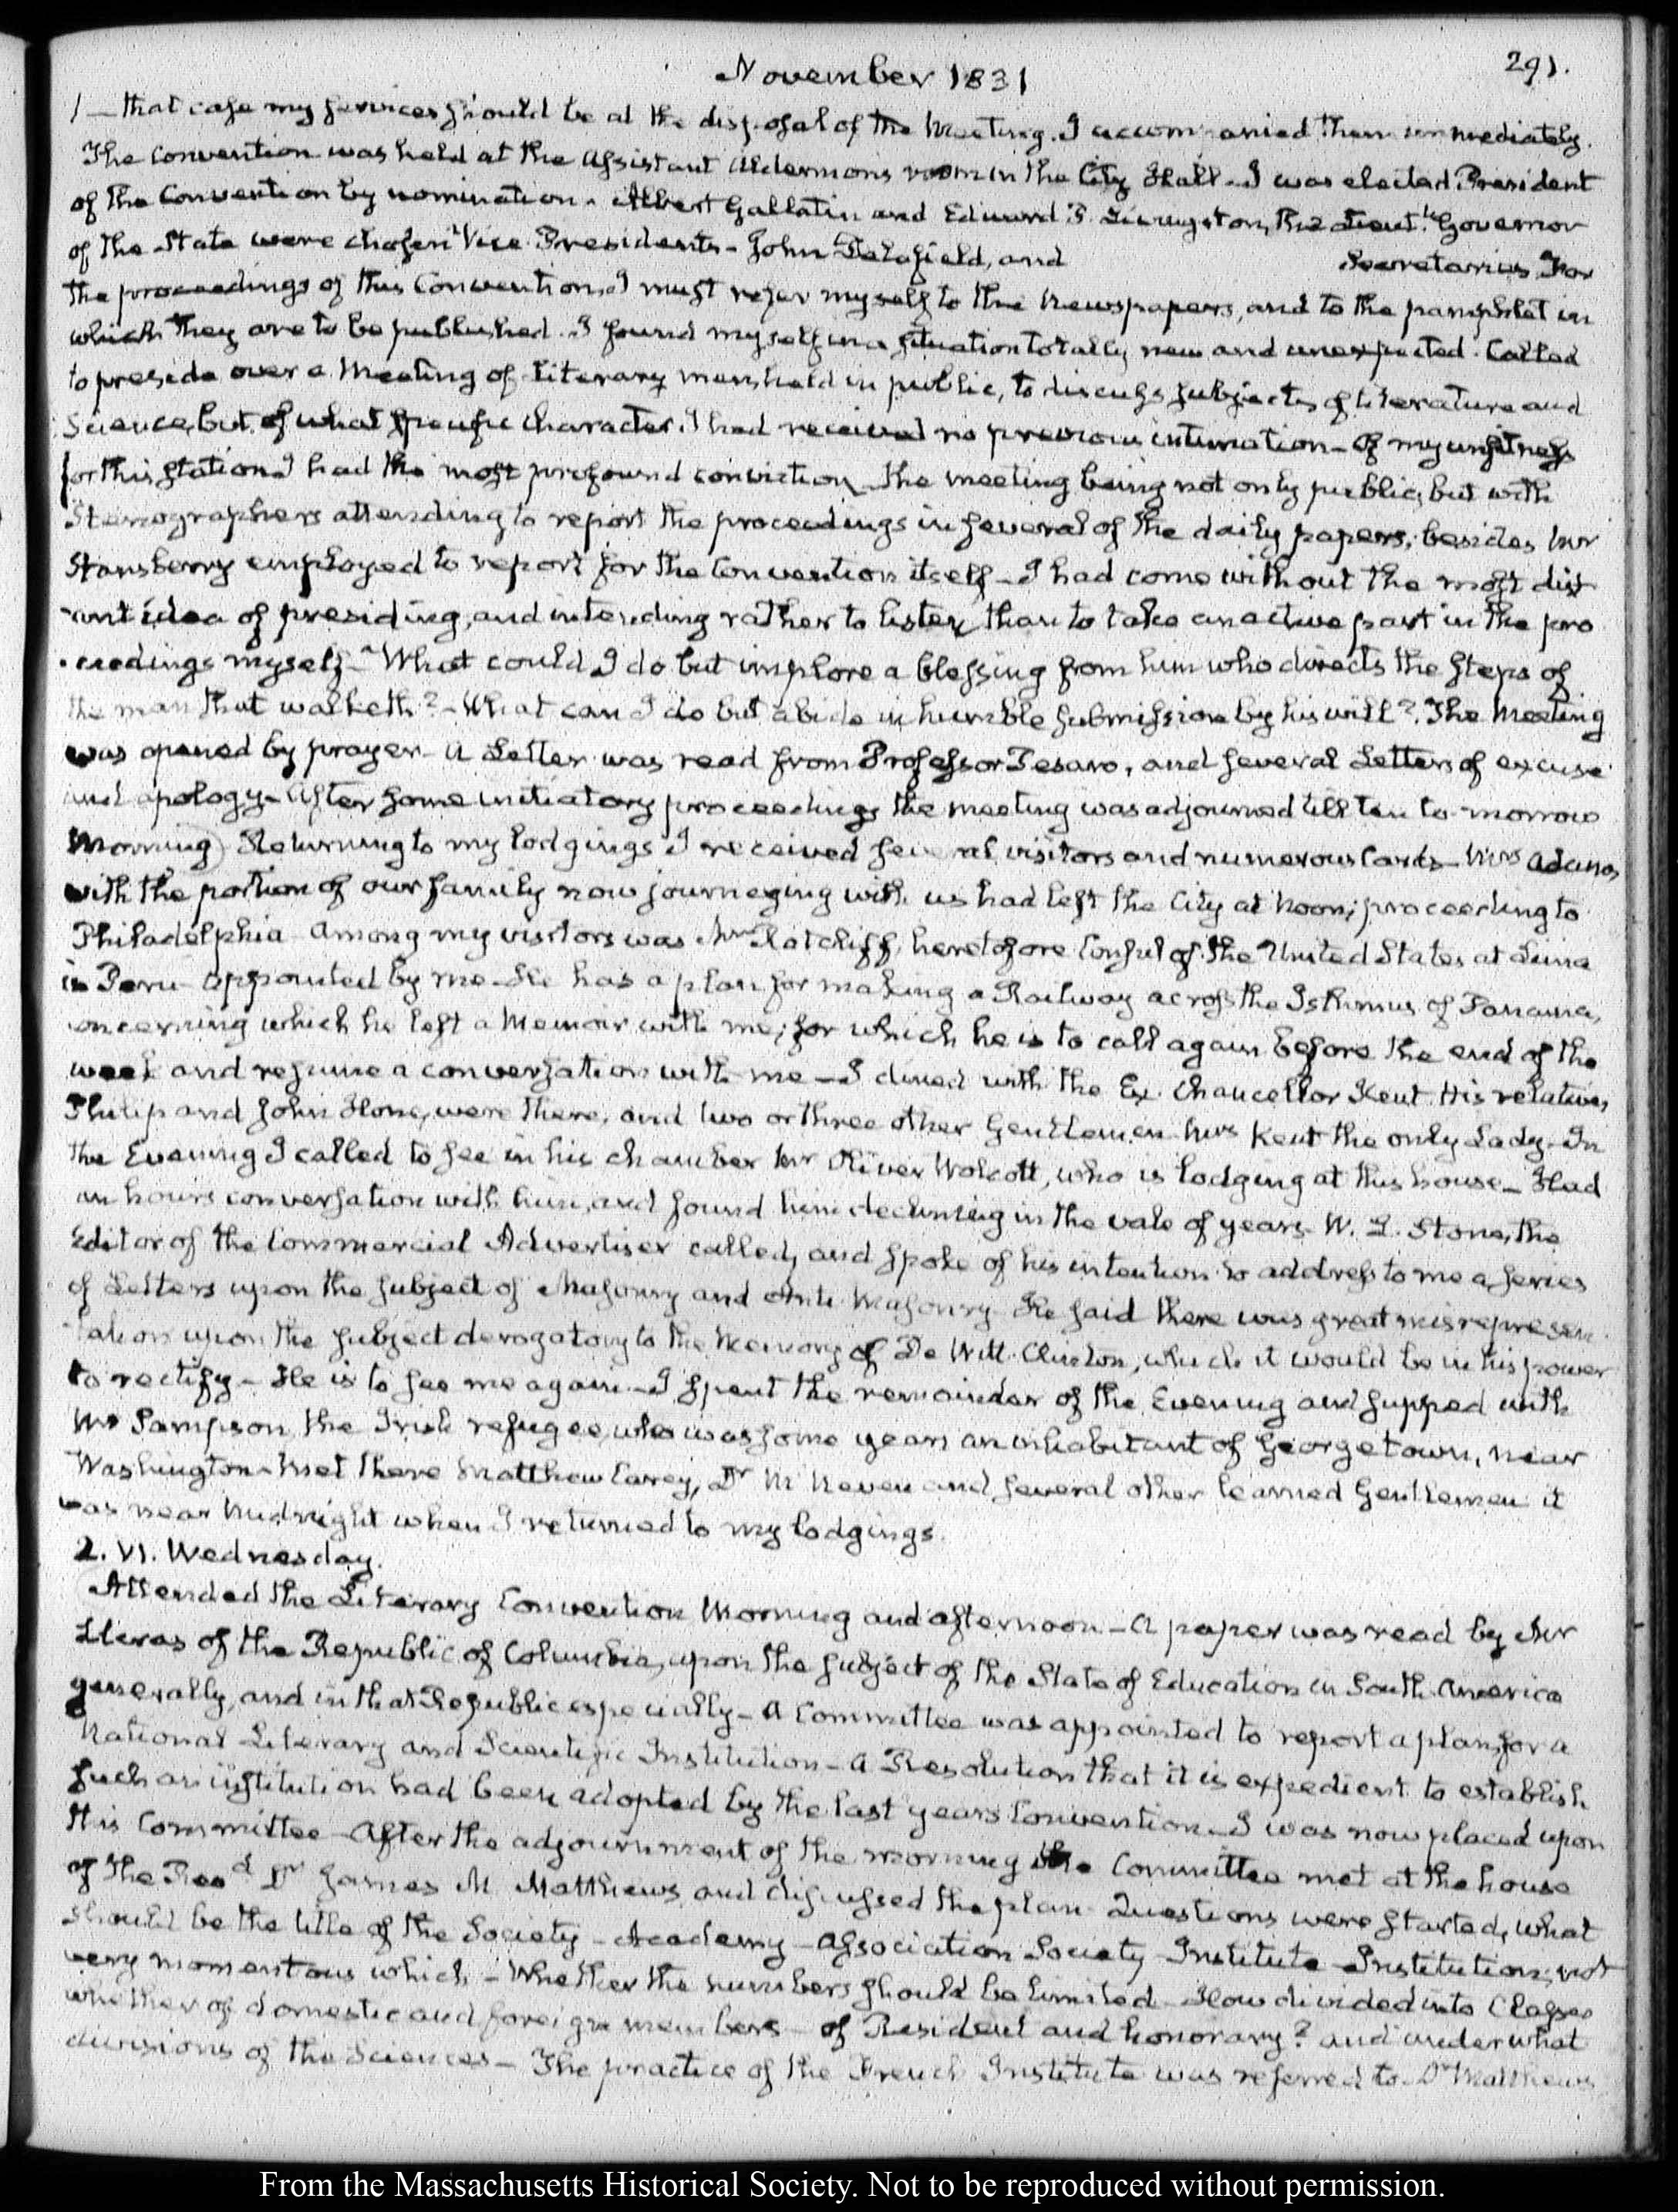 November 1831
291.
1 — that case my services should be at the disposal of the Meeting. I accompanied them immediately.
The Convention was held at the Assistant Aldermans room in the City Hall. I was elected President
of the Convention by nomination. Albert Gallatin and Edward P. Livingston, the Lieut.t Governor
of the State were chosen Vice Presidents — John Delafield, and Secretaries. For
the proceedings of this Convention I must refer myself to the Newspapers, and to the pamphlet in
which they are to be published. I found myself in a situation totally new and unexpected. Called
to preside over a Meeting of literary men, held in public, to discuss subjects of literature and
Science, but of what specific character I had received no previous intimation — Of my unfitness
for this station I had the most profound conviction — the meeting being not only public, but with
Stenographers attending to report the proceedings in several of the daily papers, besides Mr
Stansberry employed to report for the Convention itself — I had come without the most dist
ant idea of presiding, and intending rather to listen than to take an active part in the pro
ceedings myself — What could I do but implore a blessing from him who directs the steps of
the man that walketh? — What can I do but abide in humble submission by his will? The Meeting
was opened by prayer — A Letter was read from Professor Pesaro, and several Letters of excuse
and apology — After some initiatory proceedings the meeting was adjourned till ten to-morrow
Morning) Returning to my lodgings I received several visitors and numerous Cards — Mrs Adams,
with the portion of our family now journeying with us had left the City at Noon; proceeding to
Philadelphia. Among my visitors was Mr Ratcliff, heretofore Consul of the United States at Lima
in Peru appointed by me — He has a plan for making a Railway across the Isthmus of Panama,
concerning which he left a Memoir with me; for which he is to call again before the end of the
week and resume a conversation with me — I dined with the Ex. Chancellor Kent. His relatives,
Philip and John Hone, were there, and two or three other Gentlemen. Mrs Kent the only Lady — In
the Evening I called to see in his chamber Mr Oliver Wolcott, who is lodging at this house — Had
an hours conversation with him, and found him declining in the vale of years. W. L. Stone, the
Editor of the Commercial Advertiser called, and spoke of his intention to address to me a series
of Letters upon the subject of Masonry and Anti-Masonry. He said there was great misrepresen
tation upon the subject derogatory to the Memory of De Witt Clinton, which it would be in his power
to rectify — He is to see me again — I spent the remainder of the Evening and supped with
Mr Sampson, the Irish refugee, who was some years an inhabitant of Georgetown, near
Washington — Met there Matthew Carey, Dr McNeven and several other learned Gentlemen it
was near Midnight when I returned to my lodgings.
2. VI. Wednesday.
Attended the Literary Convention Morning and afternoon — A paper was read by Mr
Lleras of the Republic of Columbia, upon the subject of the State of Education in South America
generally, and in that Republic especially — A Committee was appointed to report a plan for a
National Literary and Scientific Institution — A Resolution that it is expedient to establish
such an institution had been adopted by the last years Convention — I was now placed upon
this Committee — After the adjournment of the morning the Committee met at the house
of the Revd Dr James M. Matthews, and discussed the plan. Questions were started, what
should be the title of the Society — Academy — Association Society Institute — Institution; not
very momentous which — Whether the numbers should be limited — How divided into Classes
whether of domestic and foreign members — of Resident and honorary? and under what
divisions of the Sciences — The practice of the French Institute was referred to. Dr Matthews
From the Massachusetts Historical Society. Not to be reproduced without permission.